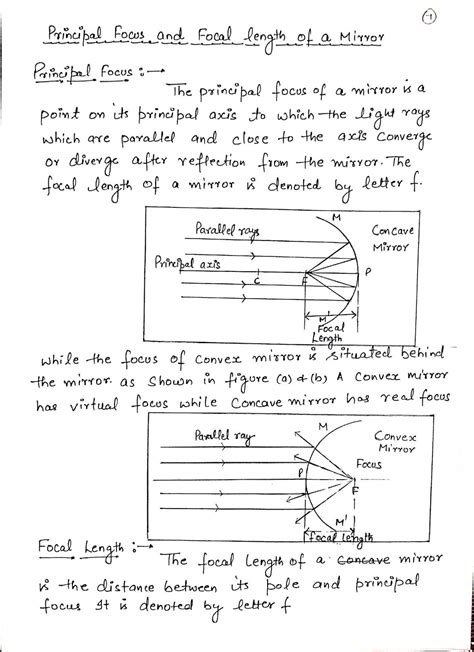 -1
Principal Focus and Focal length of a Mirror
Principal Focus :→
The principal focus of a mirror is a
point on its principal axis to which the light rays
which are parallel and close to the axis converge
or diverge after reflection from the mirror. The
focal length of a mirror is denoted by letter f.
M
Parallel rays
Concave
Mirror
Principal axis
C
F
P
M'
Focal
Length
while the focus of convex mirror is situated behind
the mirror as shown in figure (a) & (b) A convex mirror
has virtual focus while concave mirror has real focus
M
Parallel ray
Convex
Mirror
Focus
P
F
M'
focal length
Focal Length :→
The focal length of a Concave mirror
is the distance between its pole and principal
focus It is denoted by letter f